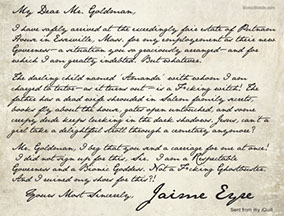 My Dear Mr. Goldman,
I have safely arrived at the exceedingly fine estate of Putnam
House in Essexville, Mass. for my employment as their new
Governess - a situation you so graciously arranged - and for
which I am greatly indebted. But whatever.
The darling child named 'Amanda' with whom I am
charged to tutor - as it turns out - is a F*cking witch! The
father has a dead wife shrouded in Salem family secrets,
books fly about the house, gates open untouched, and some
creepy dude keeps lurking in the dark shadows. Jesus, can't a
girl take a delightful stroll through a cemetery anymore?
Mr. Goldman, I beg that you send a carriage for me at once!
I did not sign up for this, Sir. I am a Respectable
Governess and a Bionic Goddess. Not a F*cking Ghostbuster.
And I ruined my shoes for this?!
Yours Most Sincerely,
Jaime Eyre
Sent from my iQuill